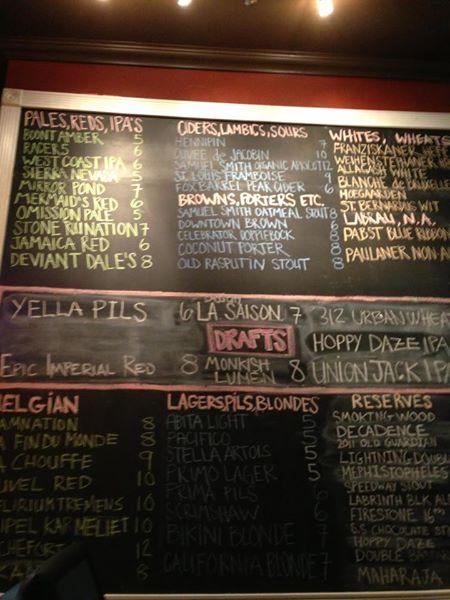 PALES, REDS, IPA'S
BOONT AMBER 5
RACER 5 6
WEST COAST IPA 6
SIERRA NEVADA 5
MIRROR POND 7
MERMAID'S RED 6
OMISSION PALE 5
STONE RUINATION 7
JAMAICA RED 6
DEVIANT DALE'S 8
CIDERS, LAMBICS, SOURS
HENNIPIN 7
CUVEE de JACOBIN 10
SAMUEL SMITH ORGANIC APRICOT 12
ST. LOUIS FRAMBOISE 9
FOX BARREL PEAR CIDER 6
BROWNS, PORTERS ETC.
SAMUEL SMITH OATMEAL STOUT 8
DOWNTOWN BROWN 6
CELEBRATOR DOPPLEBOCK
COCONUT PORTER 8
OLD RASPUTIN STOUT 8
WHITES, WHEATS
FRANZISKANER
WEIHENSTEPHANER
ALLAGASH WHITE
BLANCHE DE BRUXELLE
HOEGAARDEN
ST. BERNARDUS WIT
N.A.
PABST BLUE RIBBON
PAULANER NON A
YELLA PILS 6
LA SAISON 7
312 URBAN WHEA
DRAFTS
HOPPY DAZE IPA
EPIC IMPERIAL RED 8
MONKISH LUMEN 8
UNION JACK IPA
ELGIAN
AMNATION 8
A FIN DU MONDE 8
A CHOUFFE 9
UVEL RED 10
LIRIUM TREMENS 10
IPEL KARMELIET 10
CHEFORT 12
8
LAGERS, PILS, BLONDES
ABITA LIGHT 5
PACIFICO 5
STELLA ARTOIS 5
PRIMO LAGER 5
PRIMA PILS 6
SCRIMSHAW 6
BIKINI BLONDE 7
CALIFORNIA BLONDE 7
RESERVES
SMOKING WOOD
DECADENCE
2011 OLD GUARDIAN
LIGHTNING DOUBL
MEPHISTOPHELES
SPEEDWAY STOUT
LABRINTH BLK AL
FIRESTONE 16TH
S.S CHOCOLATE ST
HOPPY DAZE
DOUBLE BA
MAHARAJA